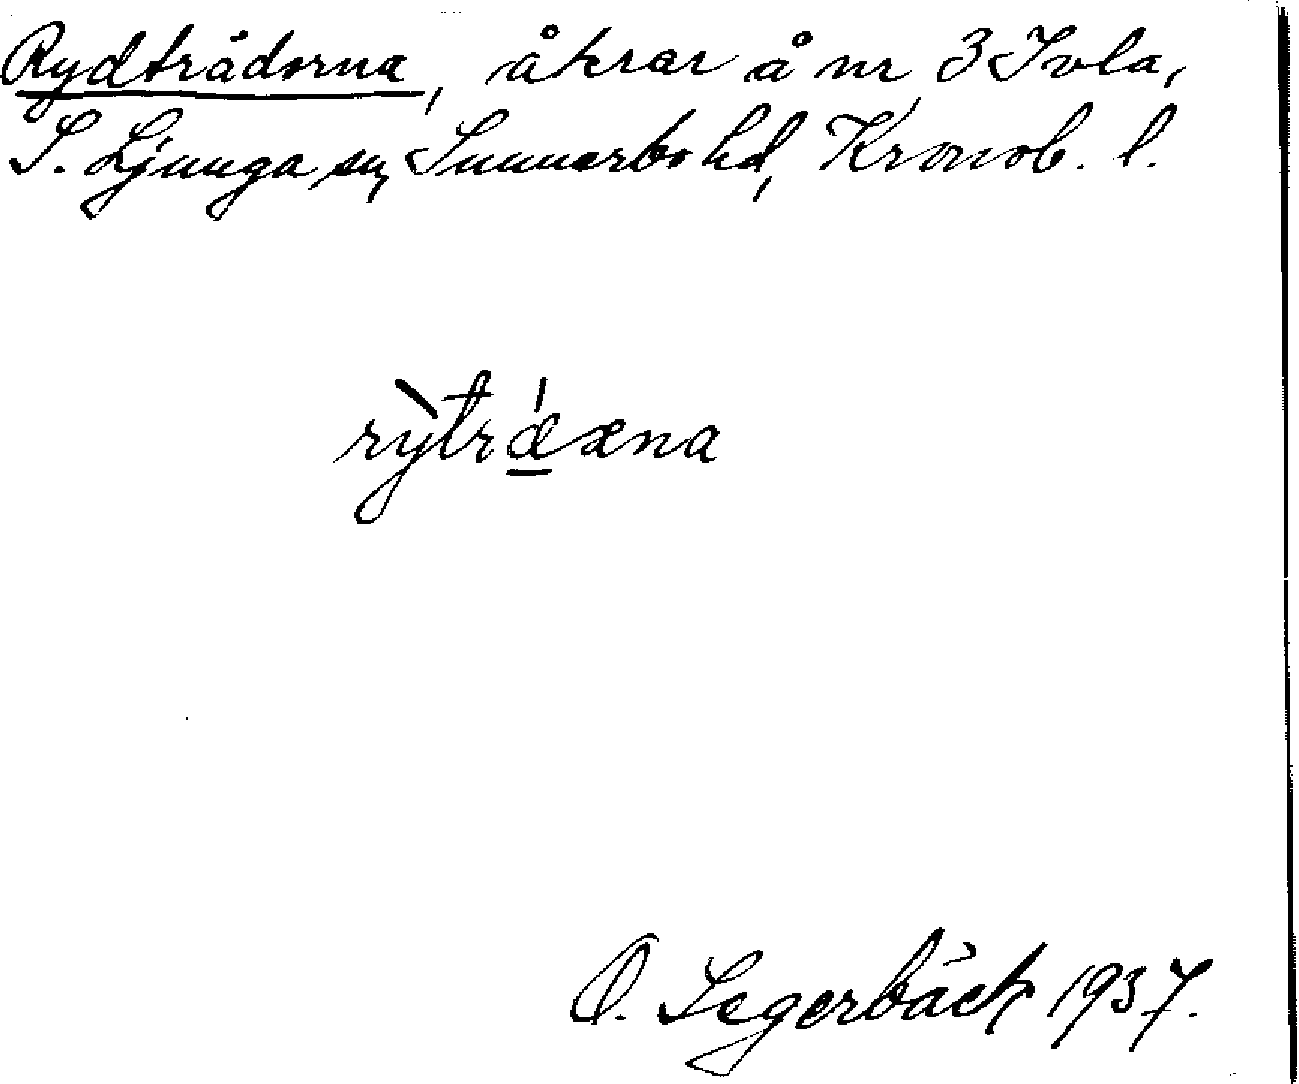 Rydträdorna, åkrar å nr 3 Ivla,
S. Ljunga sn, Sunnerbo hd, Kronob. l.
rỳtrǽæna
O. Segerbäck 1937.